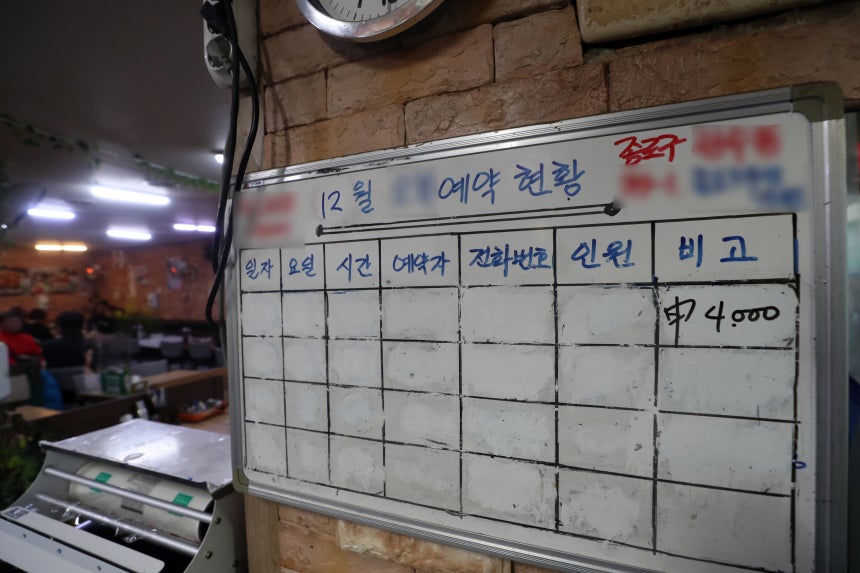 12월 예약 현황 종포구
일자 요일 시간 예약자 전화번호 인원 비고
4.000